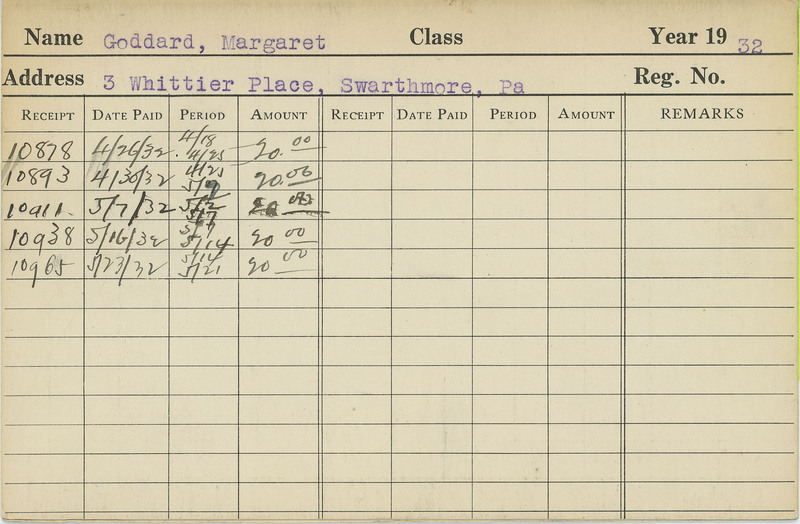 Name Goddard, Margaret Class Year 19 32
Address 3 Whittier Place, Swarthmore, Pa Reg. No.
RECEIPT DATE PAID PERIOD AMOUNT RECEIPT DATE PAID PERIOD AMOUNT REMARKS
10878 4/26/32 4/18 4/25 20.00
10893 4/30/32 4/25 20.00
10911 5/7/32 5/2 5/7 20.00
10938 5/16/32 5/7 5/14 20 00
10965 5/23/32 5/14 5/21 20 00